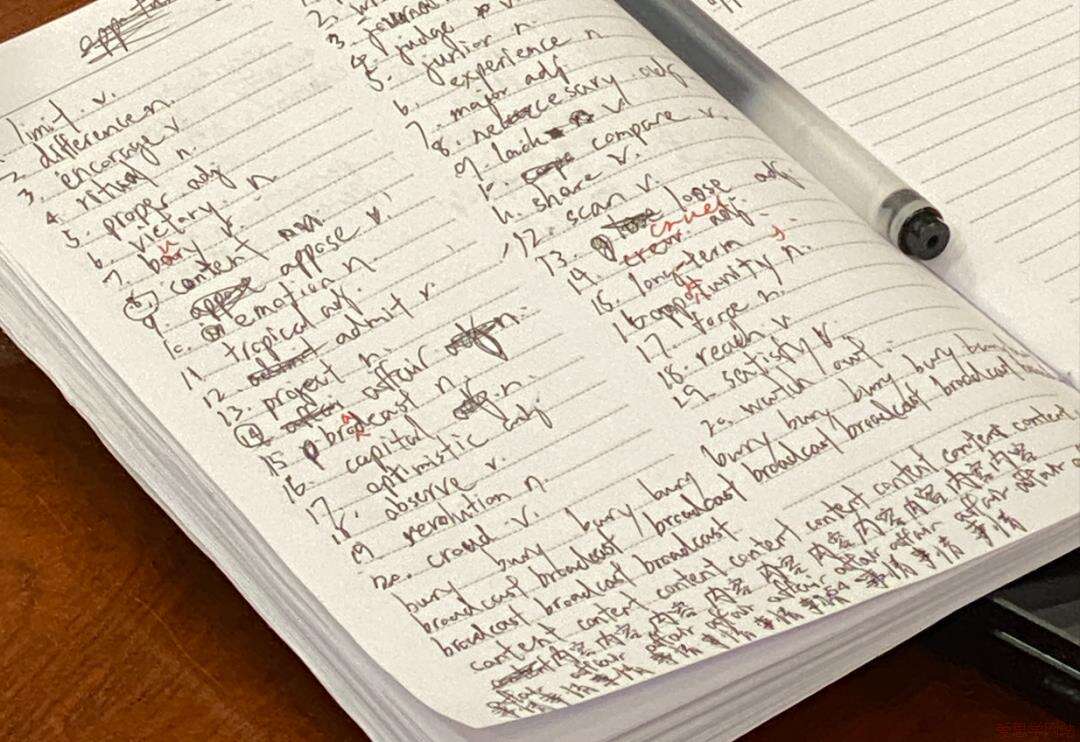 limit v.
2 difference n.
3. encorage v.
4. ritual n.
5. proper adj
6. victary. n.
7. bury v.
8. content
9. appose v.
10. emotion n
11 tropical adj.
12 admit v.
13. project n.
14 affair n.
15 broadcast n.
16. capital n.
17. optimistic adj
18 observe v.
19 revolution n.
20. crowd v.
3. journal
4. judge v.
5. junior n
6. experience n
7. major adj
8. necessary adj.
9. lack v
10. compare v.
11. share v.
12. scan v.
13. loose adj.
14. cruel adj.
15. long-term
16 opportunity n.
17. force n.
18. reach v
19. satisfy v
20. watch out.
bury bury bury bury bury bury bury bury
broadcast broadcast broadcast broadcast broadcast broadcast
broadcast broadcast broadcast
content content content content content content content content
内容 内容 内容 内容 内容 内容 内容 内容
affair affair affair affair affair affair affair affair
事情 事情 事情 事情 事情 事情 事情 事情